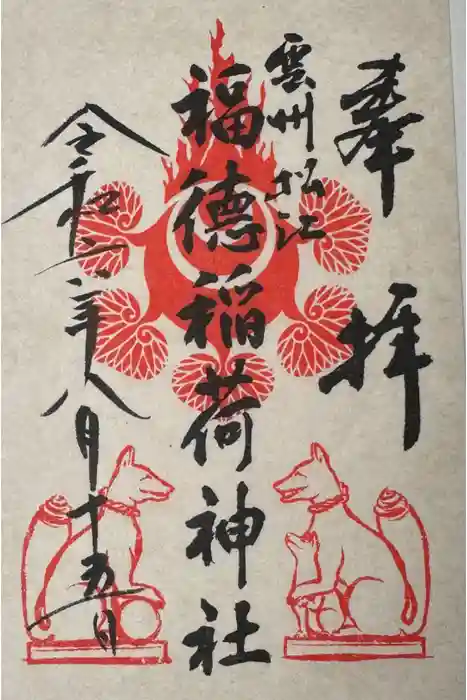 奉拝
雲州松江
福徳稲荷神社
令和六年八月十五日